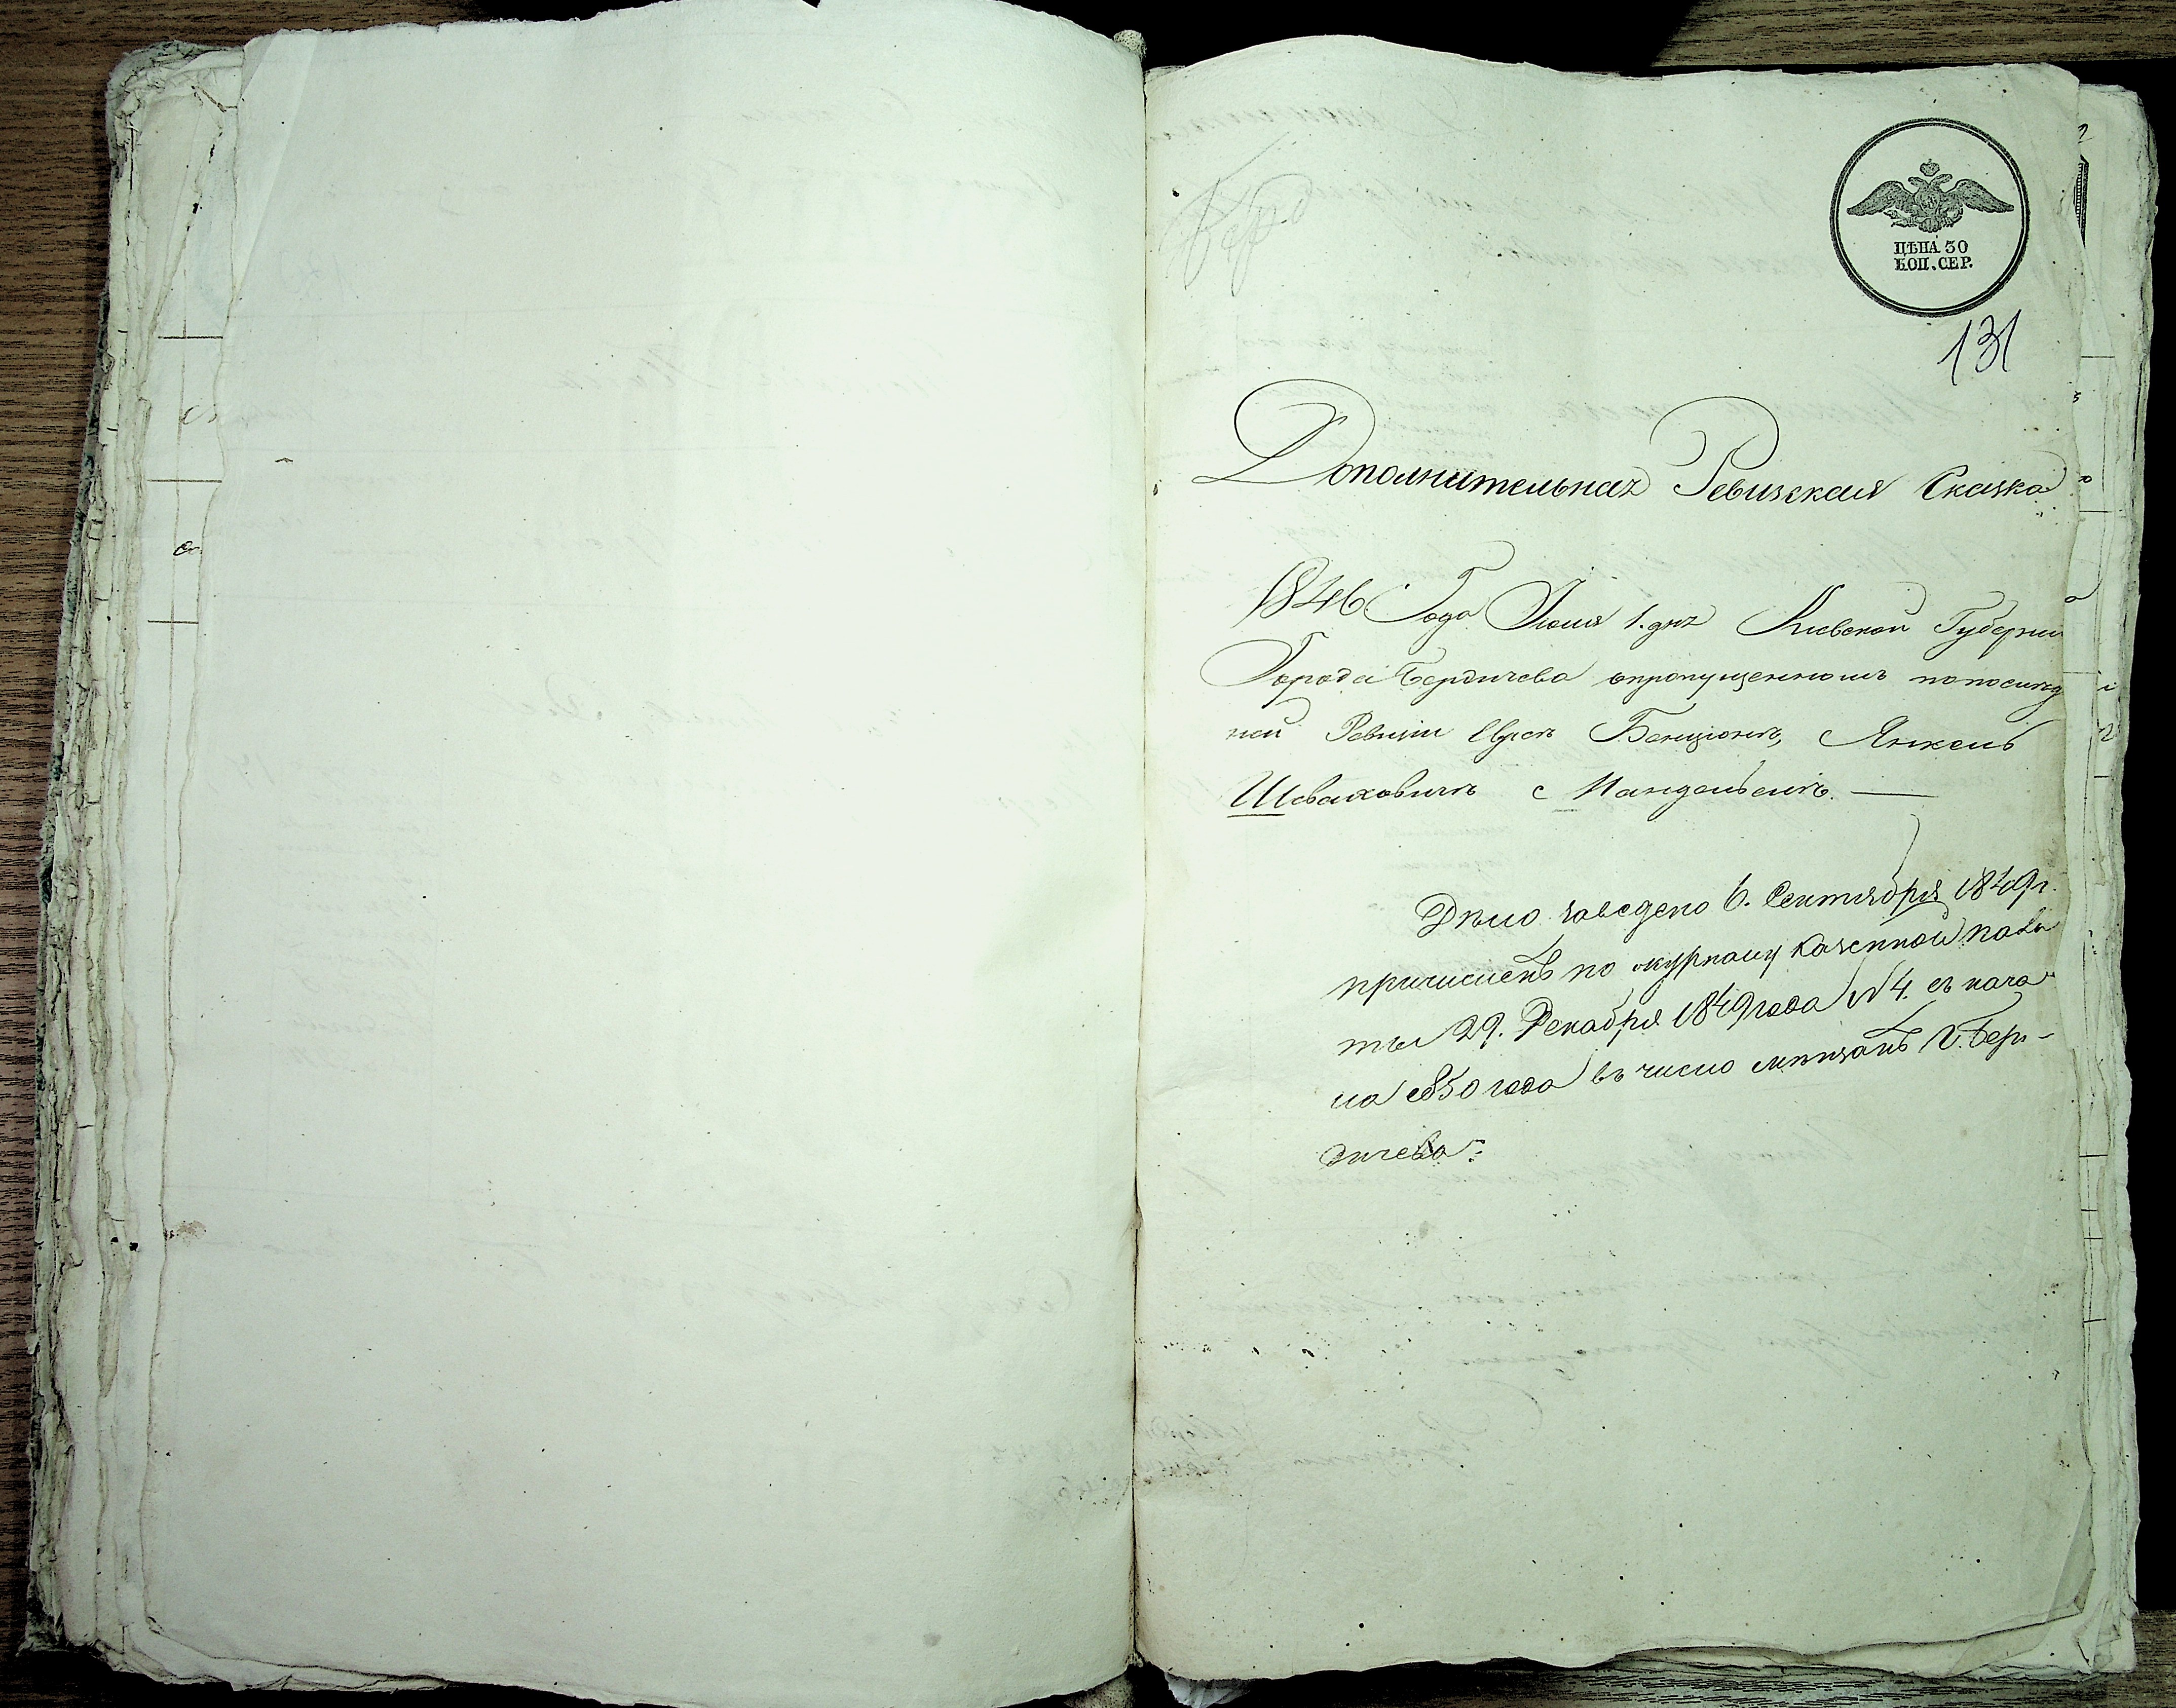 Берд
ЦѢНА 30
КОП. СЕР.
131
Дополнительная Ревизская Сказка
1846 Года Июля 1. дня Киевской Губернии
Города Бердичева опропущенномъ попослѣд
ней Ревизіи Евреѣ Бенціонъ, Янкель
Шваховичъ с Мандельемъ. —
Дѣло заведено 6. Сентября 1849 г.
причисленъ по журналу Казенной пала
ты 29. Декабря 1849 года № 4. съ нача
ла 1850 года въ число мѣщанъ г. Бер-
дичева.